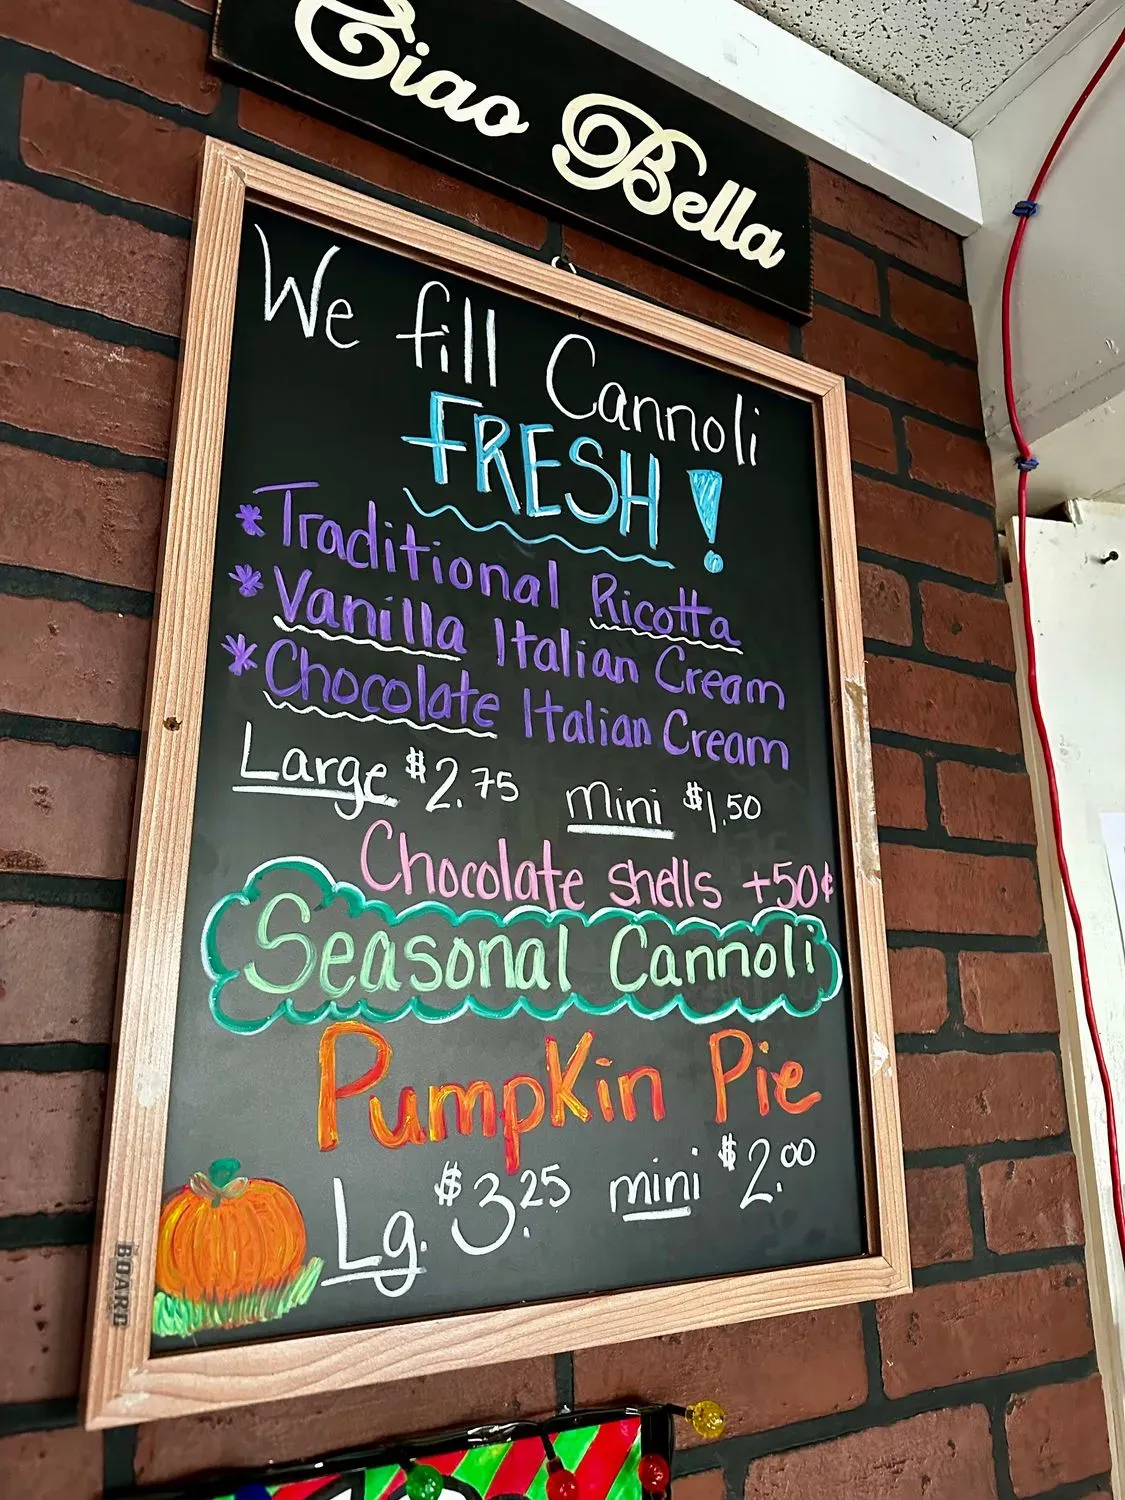 Ciao Bella
We fill Cannoli
FRESH!
* Traditional Ricotta
* Vanilla Italian Cream
* Chocolate Italian Cream
Large $2.75 mini $1.50
Chocolate shells +50¢
Seasonal Cannoli
Pumpkin Pie
Lg. $3.25 mini $2.00
BOARD